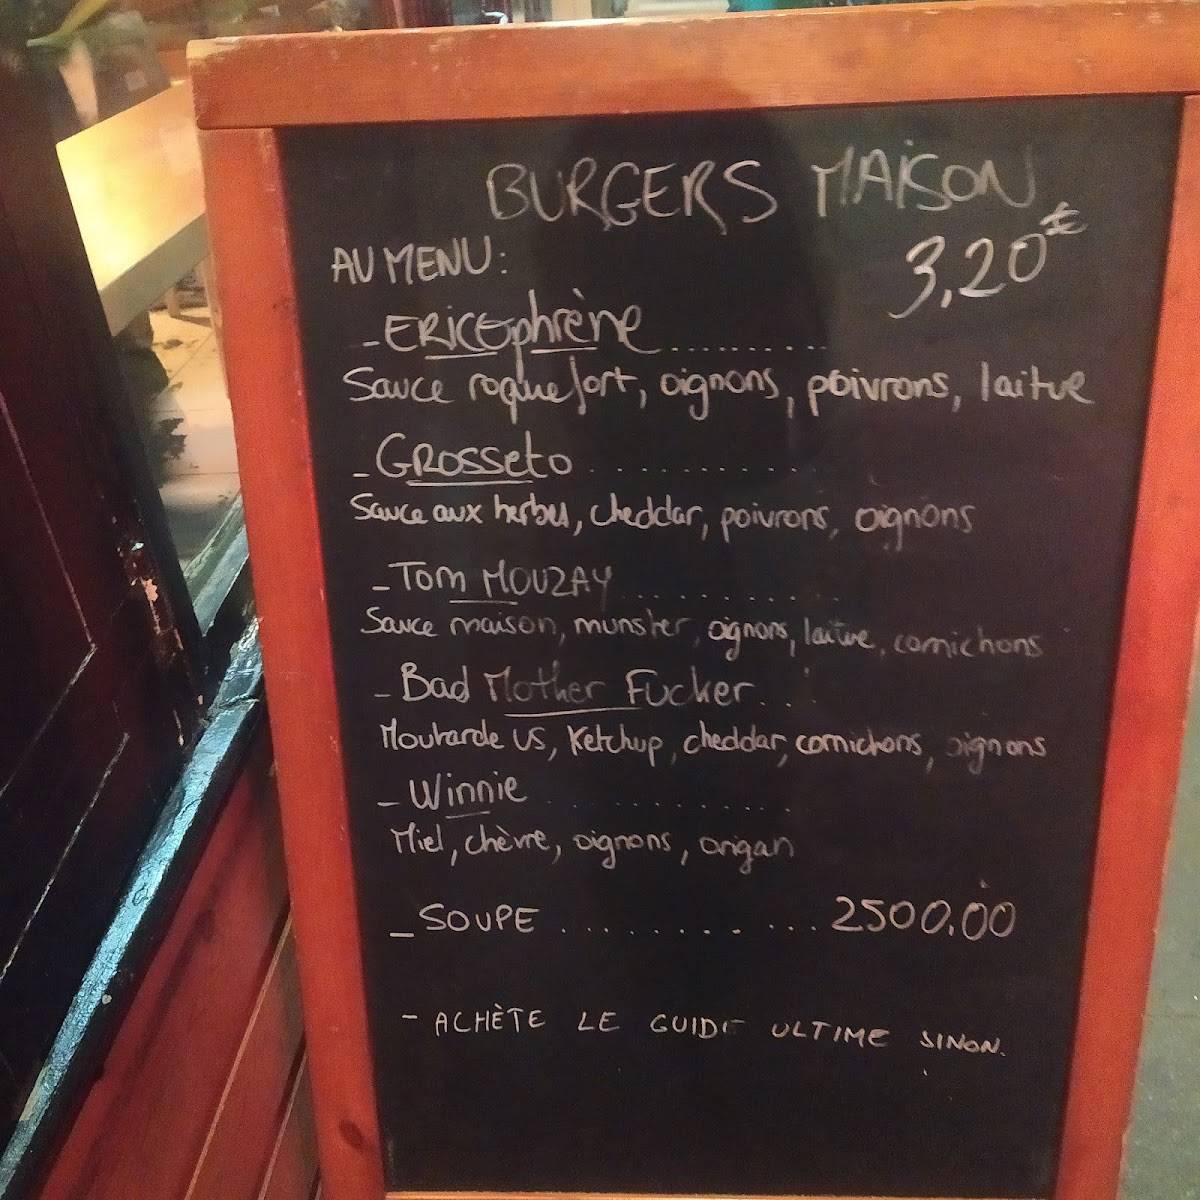 BURGERS MAISON
3,20€
AU MENU:
- ERICEphrène..........
Sauce roquefort, oignons, poivrons, laitue
- GROSSETO............
Sauce aux herbes, cheddar, poivrons, oignons
- TOM MOUZAY............
Sauce maison, munster, oignons, laitue, cornichons
- Bad Mother Fucker...
Moutarde US, Ketchup, cheddar, cornichons, oignons
- Winnie.............
Miel, chèvre, oignons, origan
- SOUPE............2500,00
- ACHÈTE LE GUIDE ULTIME SINON.